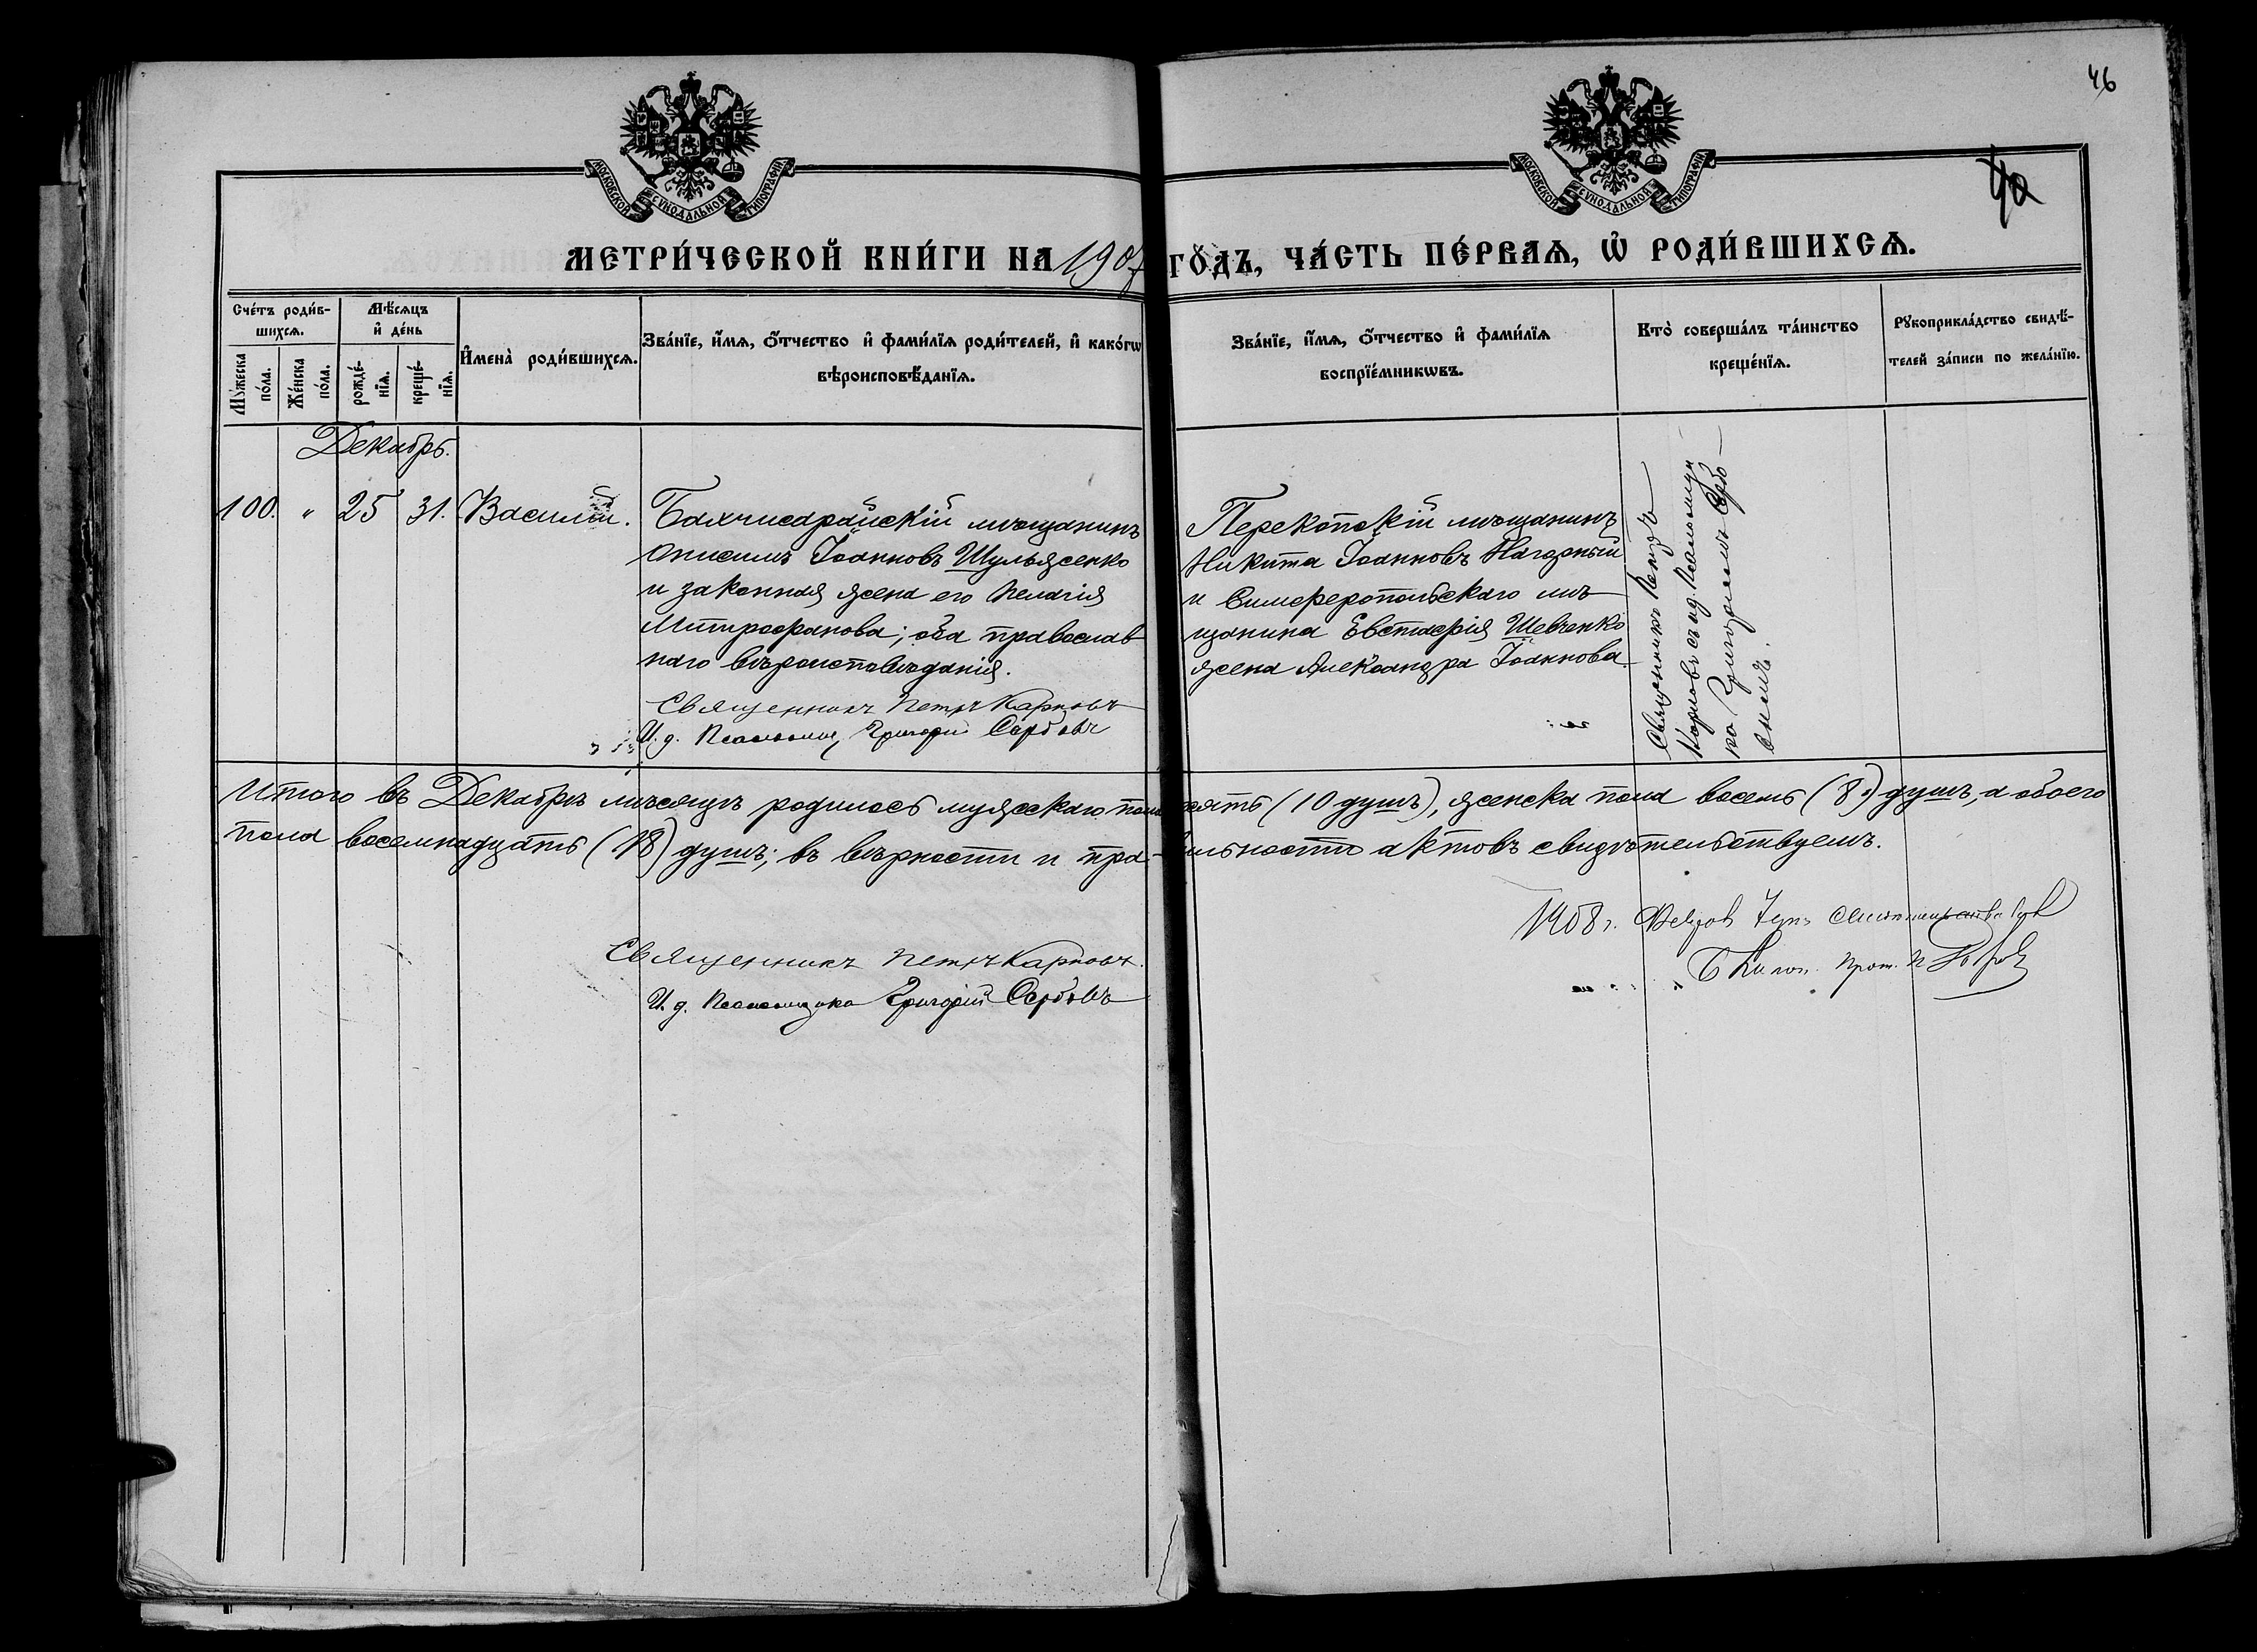 46
МОСКОВСКОЙ СѴНОДАЛЬНОЙ ТИПОГРАФІИ
МОСКОВСКОЙ СѴНОДАЛЬНОЙ ТИПОГРАФІИ
МЕТРИ́ЧЕСКОЙ КНИ́ГИ НА 1907 ГО́ДЪ, ЧА́СТЬ ПЕ́РВАѦ, Ѡ҆ РОДИ́ВШИХСѦ.
Сче́тъ роди́в-
шихсѧ.
Мꙋ́жеска по́ла.
Же́нска по́ла.
Мѣ́сѧцъ
и҆ де́нь
рожде́-нїѧ.
креще́-нїѧ.
И҆мена̀ роди́вшихсѧ.
Зва́нїе, и҆́мѧ, ѻ҆́тчество и҆ фами́лїѧ роди́телей, и҆ како́гѡ
вѣроисповѣ́данїѧ.
Зва́нїе, и҆́мѧ, ѻ҆́тчество и҆ фами́лїѧ
воспрїе́мникѡвъ.
Кто̀ соверша́лъ та́инство
креще́нїѧ.
Рꙋкоприкла́дство свидѣ́-
телей за́писи по жела́нїю.
Декабрь.
100. " 25 31. Василій.
Бахчисарайскій мѣщанинъ
Онисимъ Іоанновъ Шульженко
и законная жена его Пелагія
Митрофанова; оба православ
наго вѣроисповѣданія.
Священникъ Петръ Карповъ
И. д. Псаломщ, Григорій Сербовъ
Перекопскій мѣщанинъ
Никита Іоанновъ Нагорный
и Симферопольскаго мѣ
щанина Евстафія Шевченко
жена Александра Іоаннова.
Священникъ Петръ
Карповъ съ и.д. Псаломщи
ка Григоріемъ Сербо
вымъ.
Итого въ Декабрѣ мѣсяцѣ родилось мужескаго пола десять (10 душъ), женска пола восемь (8) душъ, а обоего
пола восемнадцать (18) душъ; въ вѣрности и пра-вильности актовъ свидѣтельствуемъ.
Священникъ Петръ Карповъ.
И. д. Псаломщика Григорій Сербовъ
1908 г.
Прот. П.